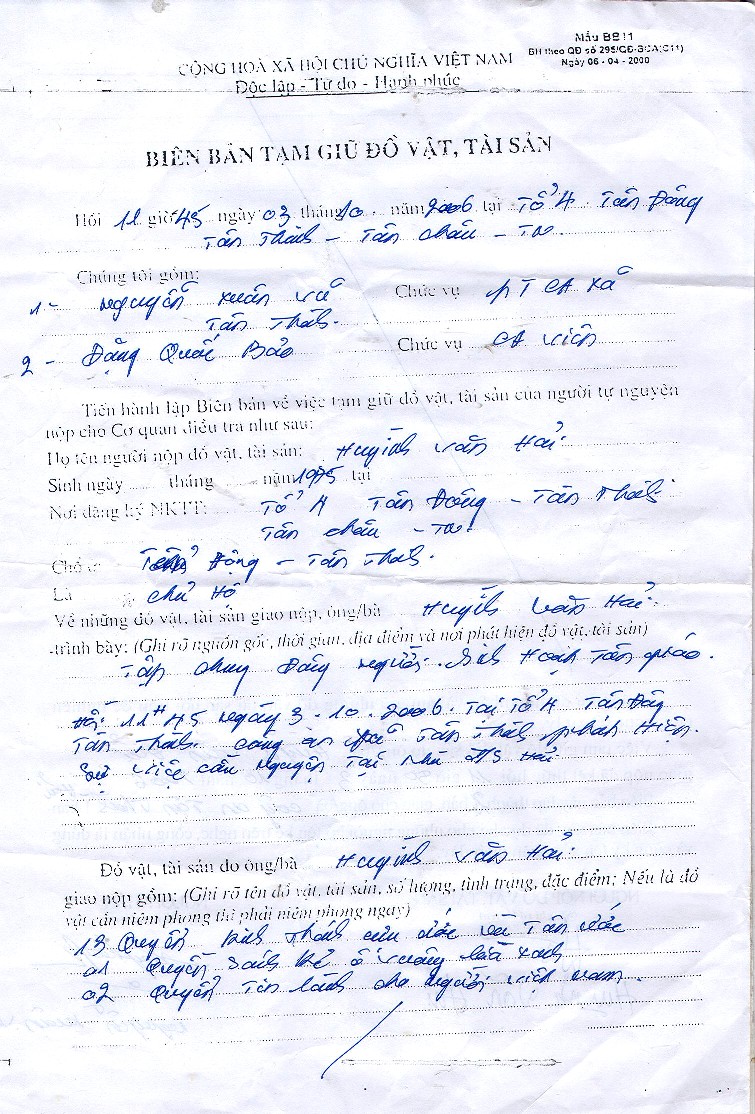 Mẫu BB11
BH theo QĐ số 298/QĐ-BCA(C11)
Ngày 06 - 04 - 2000
CỘNG HOÀ XÃ HỘI CHỦ NGHĨA VIỆT NAM
Độc lập - Tự do - Hạnh phúc
BIÊN BẢN TẠM GIỮ ĐỒ VẬT, TÀI SẢN
Hồi 11 giờ 45 ngày 03 tháng 10 năm 2006 tại Tổ 4 Tân Đông
Tân Thành - Tân Châu - TN.
Chúng tôi gồm:
1- Nguyễn Xuân Vũ Chức vụ PT CA Xã
Tân Thành.
2 - Đặng Quốc Bảo Chức vụ CA viên
Tiến hành lập Biên bản về việc tạm giữ đồ vật, tài sản của người tự nguyện
nộp cho Cơ quan điều tra như sau:
Họ tên người nộp đồ vật, tài sản: Huỳnh Văn Hải.
Sinh ngày tháng năm 1975 tại
Nơi đăng ký NKTT: Tổ 4 Tân Đông - Tân Thành
Tân Châu - TN.
Chỗ ở Đông - Tân Thành.
Là Chủ Hộ
Về những đồ vật, tài sản giao nộp, ông/bà Huỳnh Văn Hải
trình bày: (Ghi rõ nguồn gốc, thời gian, địa điểm và nơi phát hiện đồ vật, tài sản)
Tập chung đông người. Sinh Hoạt Tôn giáo.
Hồi 11H 45 ngày 3.10.2006. Tại Tổ 4 Tân Đông
Tân Thành. công an xã Tân Thành phát Hiện.
Sự việc cầu nguyện Tại Nhà Hải
Đồ vật, tài sản do ông/bà Huỳnh Văn Hải.
giao nộp gồm: (Ghi rõ tên đồ vật, tài sản, số lượng, tình trạng, đặc điểm; Nếu là đồ
vật cần niêm phong thì phải niêm phong ngay)
13 Quyển Kinh Thánh cựu ước và Tân ước
01 Quyển Sách Kẻ ô vuông bìa xanh
02 Quyển Tin lành cho người việt nam.